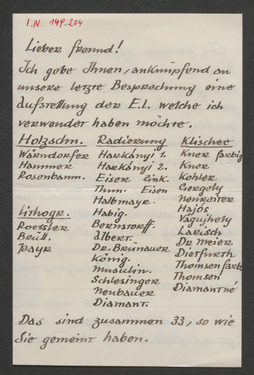 I.N. 149.204
Lieber Freund!
Ich gebe Ihnen, anknüpfend an
unsere letzte Besprechung eine
Aufstellung der E.L. welche ich
verwendet haben möchte.
Holzschn. Radierung Klischee
Wärndorfer Harkányi 1. Kner farbig
Hammer Harkányi 2. Kner
Rosenbaum. Eisler link. Kohler
Thun. Eisen Gergely
Halbmayr. Neureiter
Lithogr. Habig. Hajós
Roessler Bernstorff. Vágujhely
Beüll. Albert. Larisch
Payr Dr. Brunauer Dr Meier
König. Dietfurth
Musulin. Thomsen farb
Schlesinger Thomsen
Neubauer Diamant né
Diamant.
Das sind zusammen 33, so wie
Sie gemeint haben.